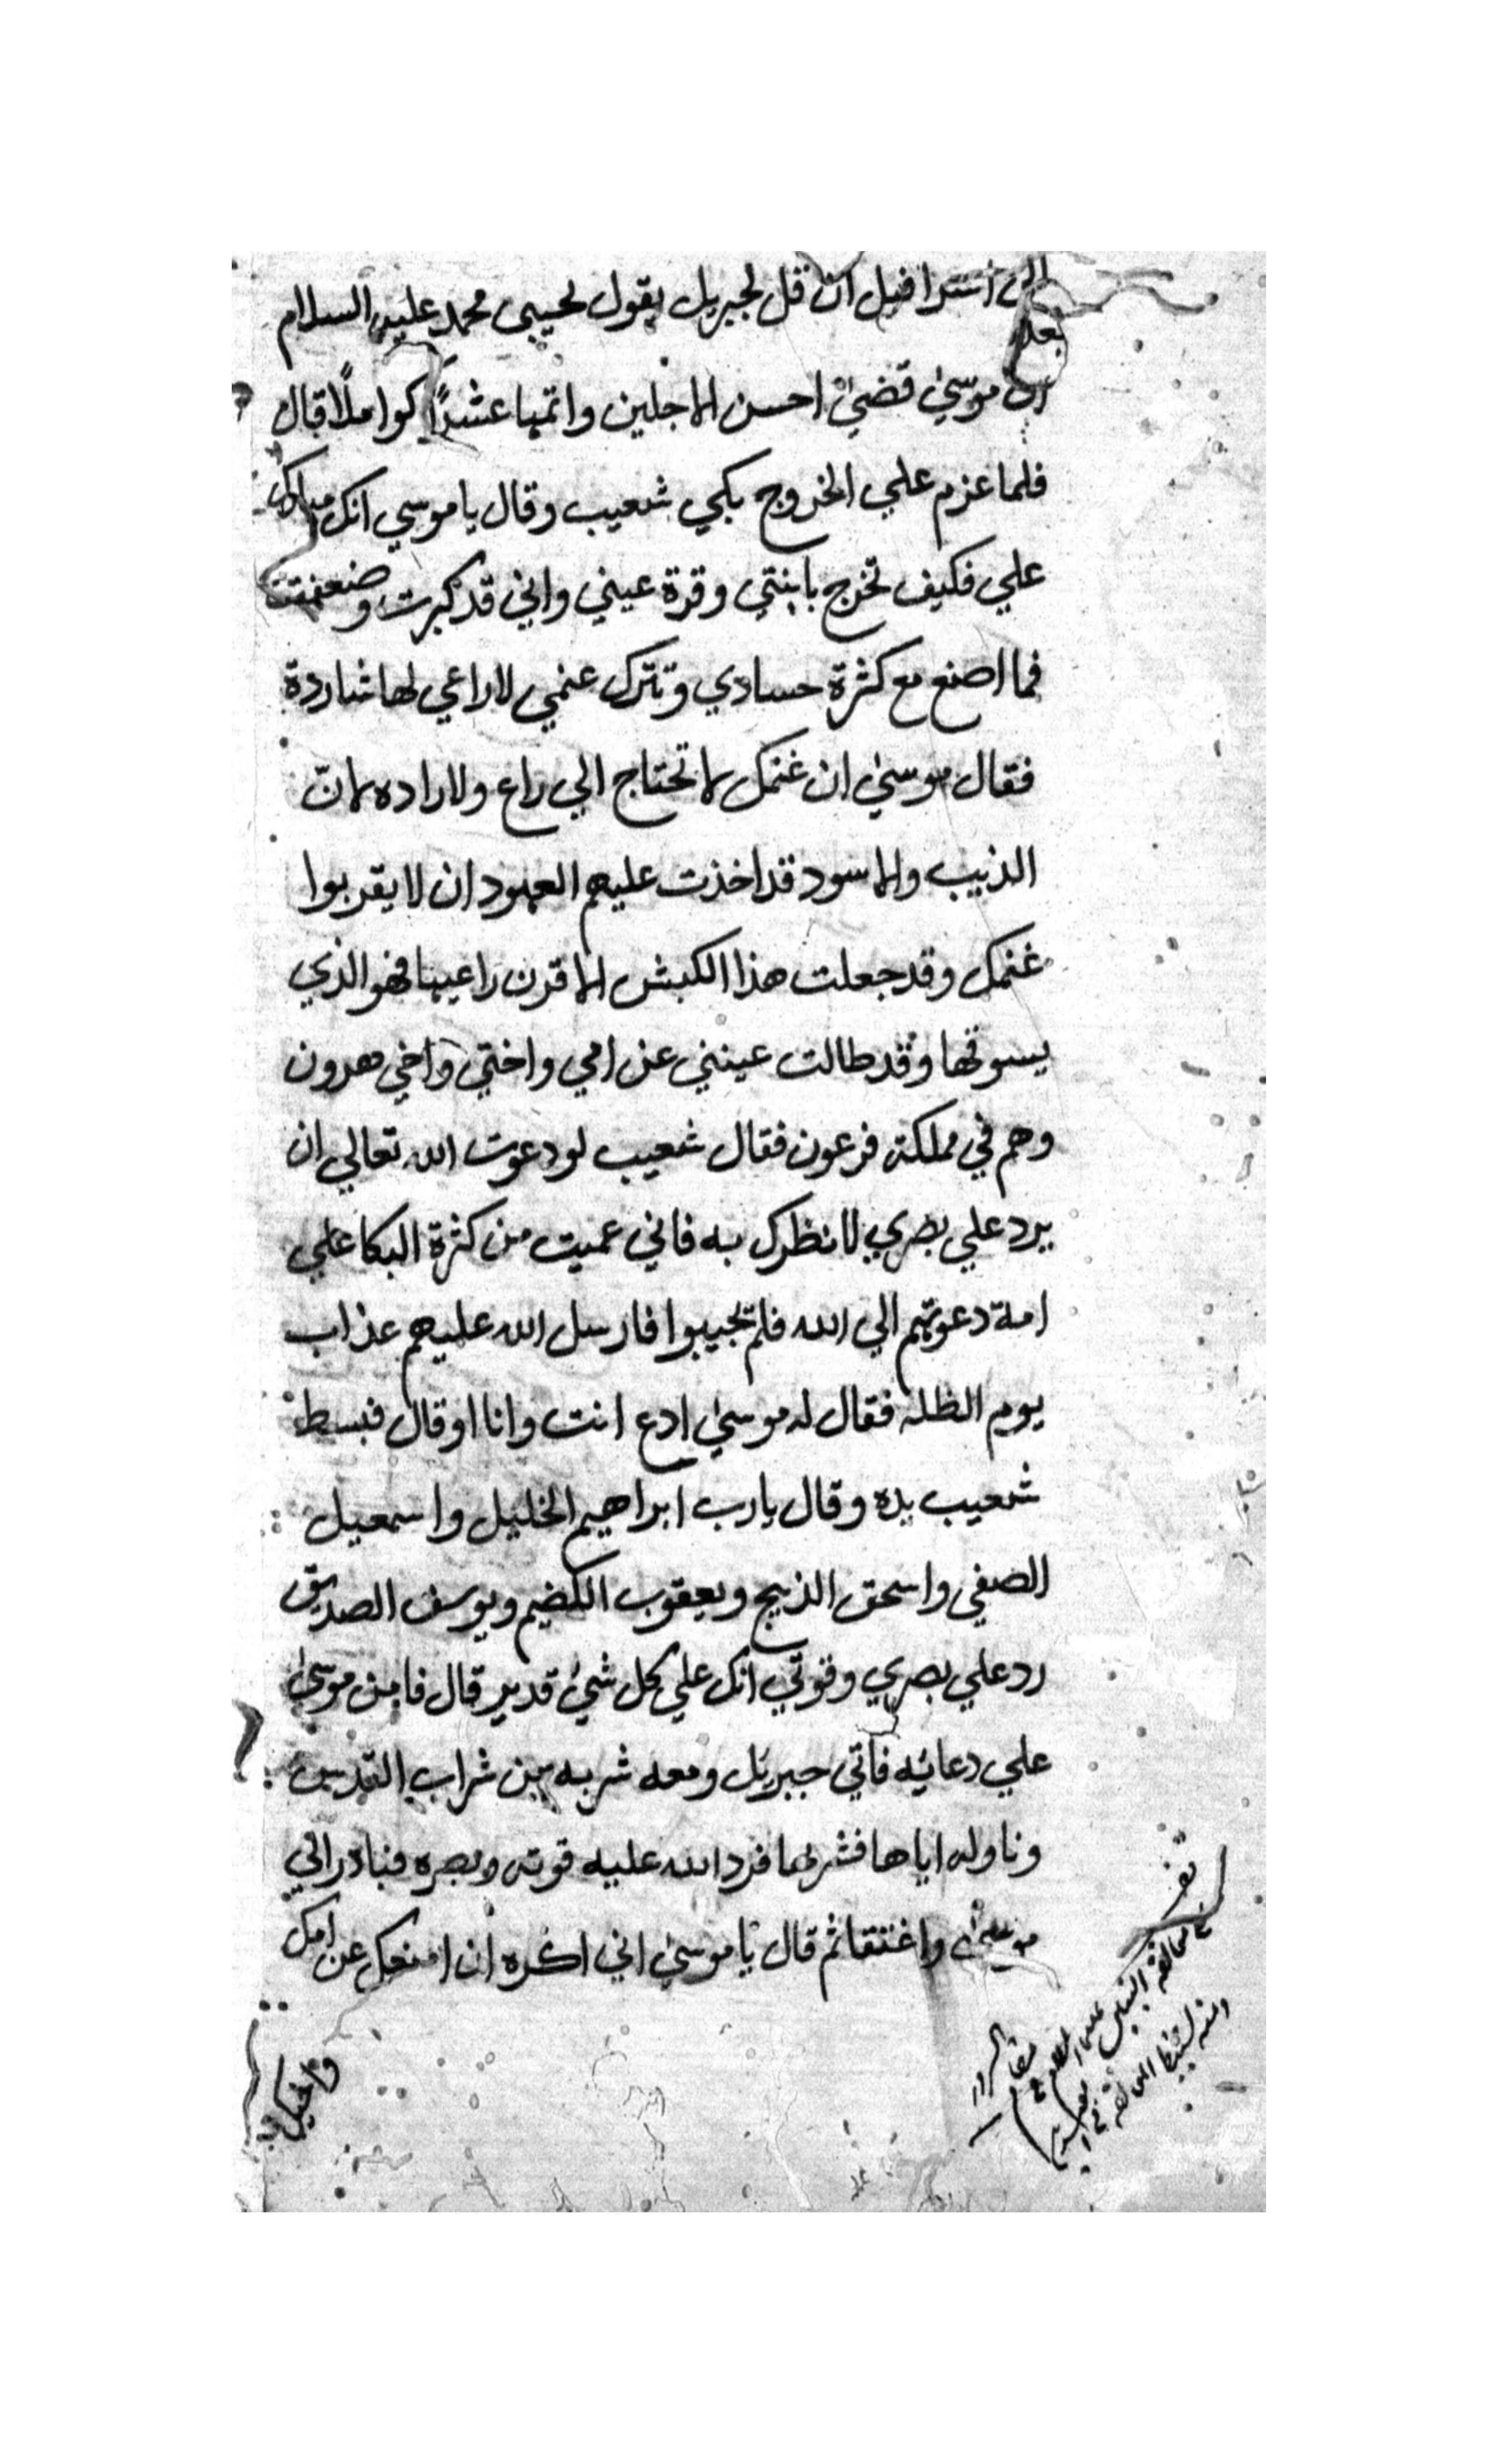 الى اسرافيل ان قل لجبريل يقول لحبيبى محمد عليه السلام
ان موسىٰ قضىٰ احسن الاجلين واتمها عشرًا كواملًا قال
فلما عزم علي الخروج بكي شعيب وقال يا موسي انك مبارك
علي فكيف تخرج بابنتي وقرة عيني واني قد كبرت وضعفت
فما اصنع مع كثرة حسادي وتترك غنمي لا راعي لها شاردة
فقال موسىٰ ان غنمك لا تحتاج الي راع ولا راده لانّ
الذييب والاسود قد اخذت عليهم العهود ان لا يقربوا
غنمك وقد جعلت هذا الكبش الاقرن راعيها فهو الذي
يسوقها وقد طالت عينني عن امي واختي واخي هرون
وهم في مملكة فرعون فقال شعيب لو دعوت الله تعالي ان
يرد علي بصري لانظرك به فاني عميت من كثرة البكا علي
امة دعوتهم الي الله فلم تجيبوا فارسل الله عليهم عذاب
يوم الظله فقال له موسىٰ ادع انت وانا اوقال فبسط
شعيب يده وقال يارب ابراهيم الخليل واسمعيل
الصفي واسحق الذبيح ويعقوب الكضيم ويوسف الصديق
رد علي بصري وقوتي انك علي كل شئ قدير قال فامن موسىٰ
علي دعائه فاتي جبريل ومعه شربه من شراب القدس
وناوله اياها فشربها فرد الله عليه قوته وبصره فبادر الي
موسىٰ واغتنقا ثم قال يا موسىٰ اني اكره ان امنعك عن امك
واخيك